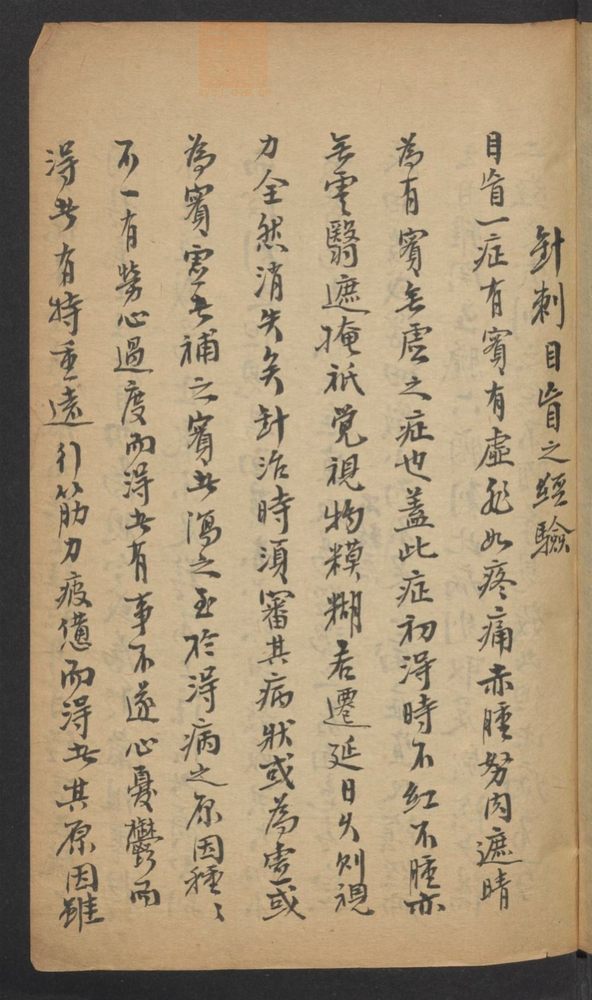 針刺目盲之經驗
目盲一症有實有虛非如疼痛赤腫努肉遮睛
為有實無虛之症也蓋此症初得時不紅不腫亦
無雲翳遮掩祇覺視物糢糊若遷延日久則視
力全然消失矣針治時須審其病狀或為虛或
為實虛者補之實者瀉之至於得病之原因種〻
不一有勞心過度而得者有事不遂心憂鬱而
得者有持重遠行筋力疲憊而得者其原因雖